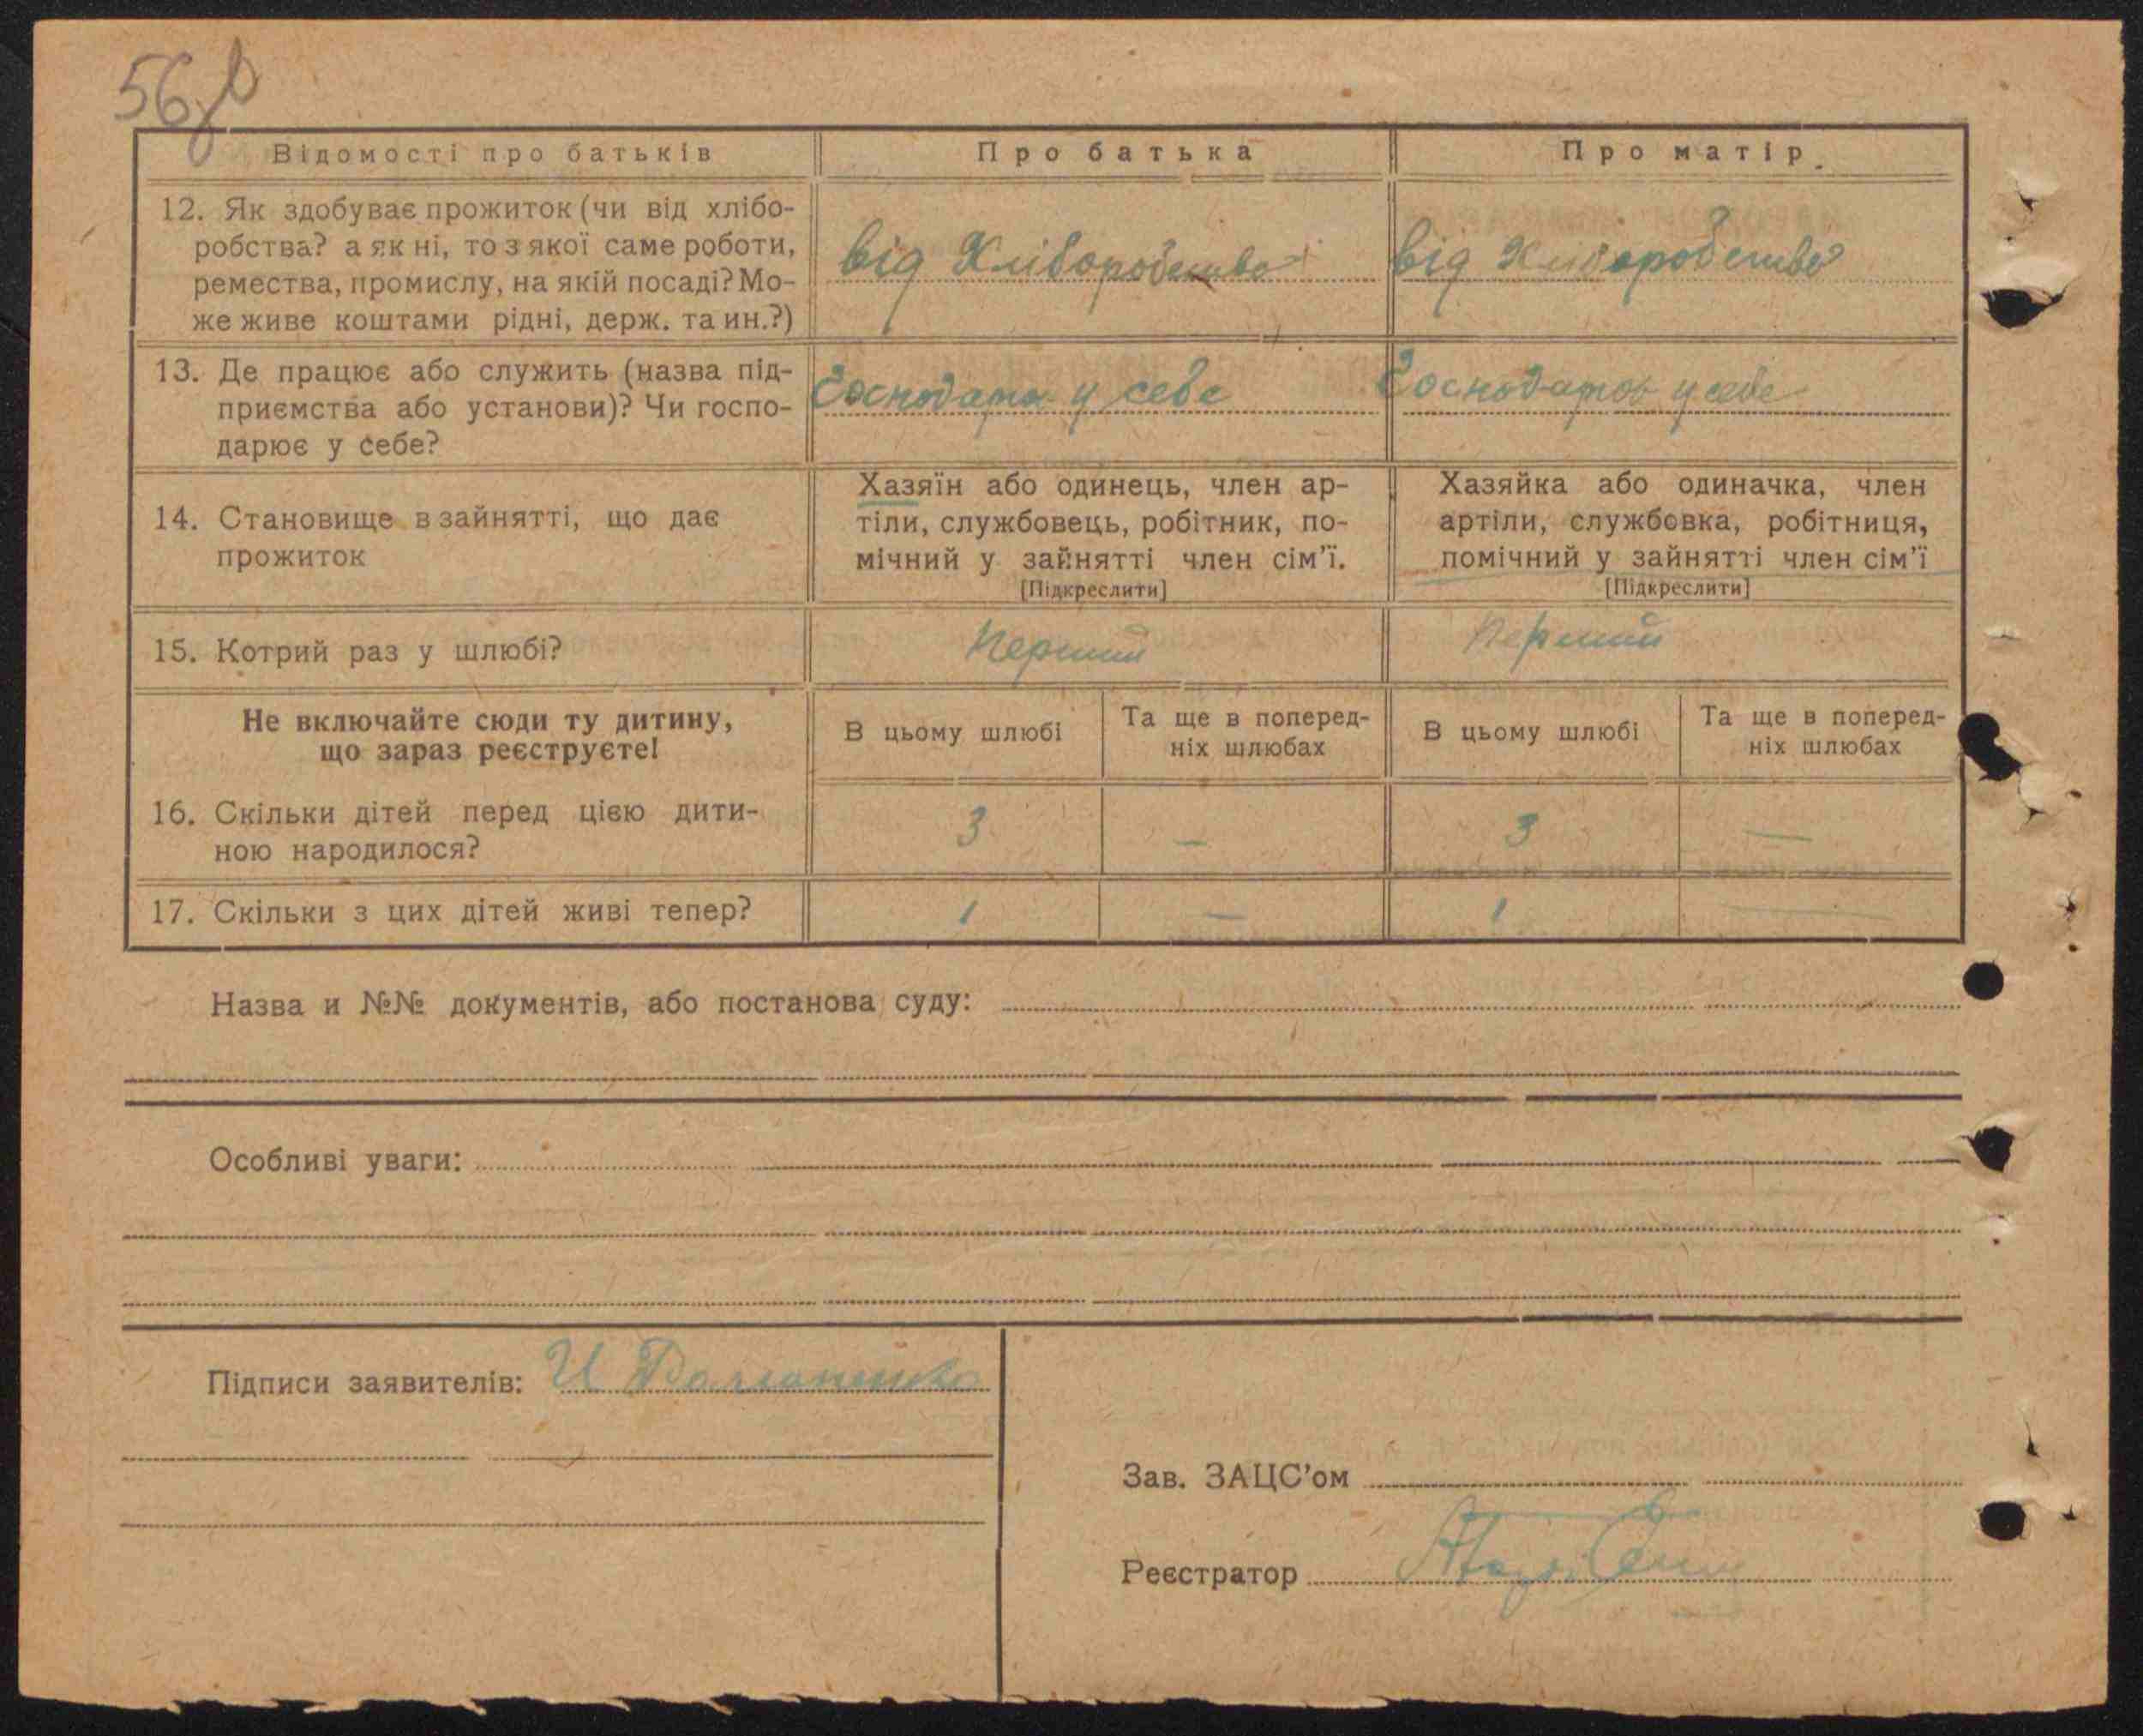 56
Відомості про батьків
Про батька
Про матір
12. Як здобуває прожиток (чи від хлібо-
робства? а як ні, то з якої саме роботи,
ремества, промислу, на якій посаді? Мо-
же живе коштами рідні, держ. та ин.?)
від Хліборобства
від Хліборобства
13. Де працює або служить (назва під-
приємства або установи)? Чи госпо-
дарює у себе?
Господарює у себе
Господарює у себе
14. Становище в зайнятті, що дає
прожиток
Хазяїн або одинець, член ар-
тіли, службовець, робітник, по-
мічний у зайнятті член сім’ї.
[Підкреслити]
Хазяйка або одиначка, член
артіли, службовка, робітниця,
помічний у зайнятті член сім’ї
[Підкреслити]
15. Котрий раз у шлюбі?
Перший
Перший
Не включайте сюди ту дитину,
що зараз реєструєте!
В цьому шлюбі
Та ще в поперед-
ніх шлюбах
В цьому шлюбі
Та ще в поперед-
ніх шлюбах
16. Скільки дітей перед цією дити-
ною народилося?
3 — 3 —
17. Скільки з цих дітей живі тепер?
1 — 1 —
Назва и №№ документів, або постанова суду:
Особливі уваги:
Підписи заявителів: И
Зав. ЗАЦС’ом
Реєстратор